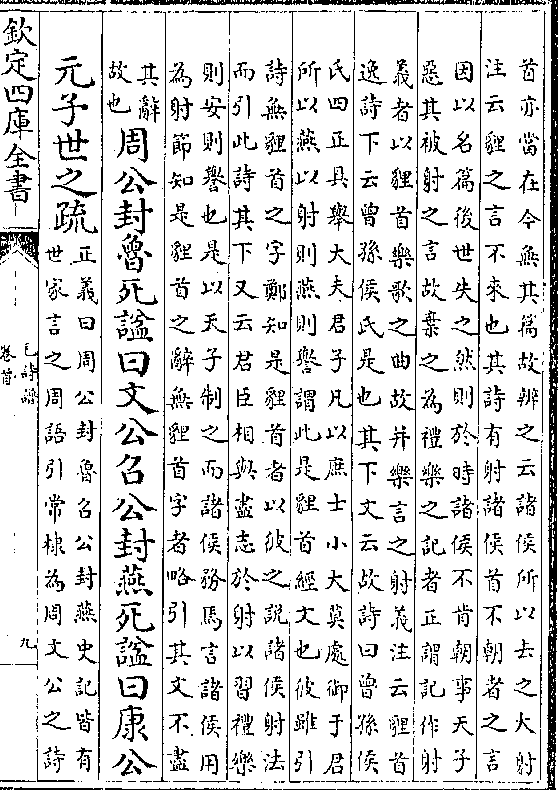 首亦當在今無其篇故辨之云諸侯所以去之大射
注云貍之言不來也其詩有射諸侯首不朝者之言
因以名篇後世失之然則於時諸侯不肯朝事天子
惡其被射之言故棄之為禮樂之記者正謂記作射
義者以貍首樂歌之曲故并樂言之射義注云貍首
逸詩下云曾孫侯氏是也其下文云故詩曰曾孫侯
氏四正具舉大夫君子凡以庶士小大莫處御于君
所以燕以射則燕則譽謂此是貍首經文也彼雖引
詩無貍首之字鄭知是貍首者以彼之說諸侯射法
而引此詩其下又云君臣相與盡志於射以習禮樂
則安則譽也是以天子制之而諸侯務焉言諸侯用
為射節知是貍首之辭無貍首字者略引其文不盡
其辭
故也
周公封魯死諡曰文公召公封燕死諡曰康公
元子世之疏
正義曰周公封魯召公封燕史記皆有
世家言之周語引常棣為周文公之詩
欽定四庫全書
毛詩譜
卷首
九